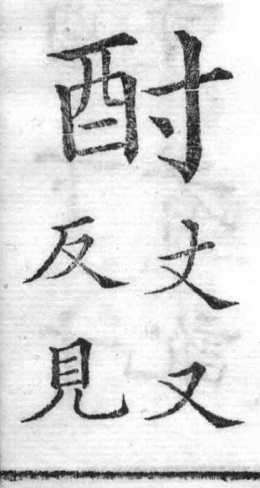 酎
丈又
反見